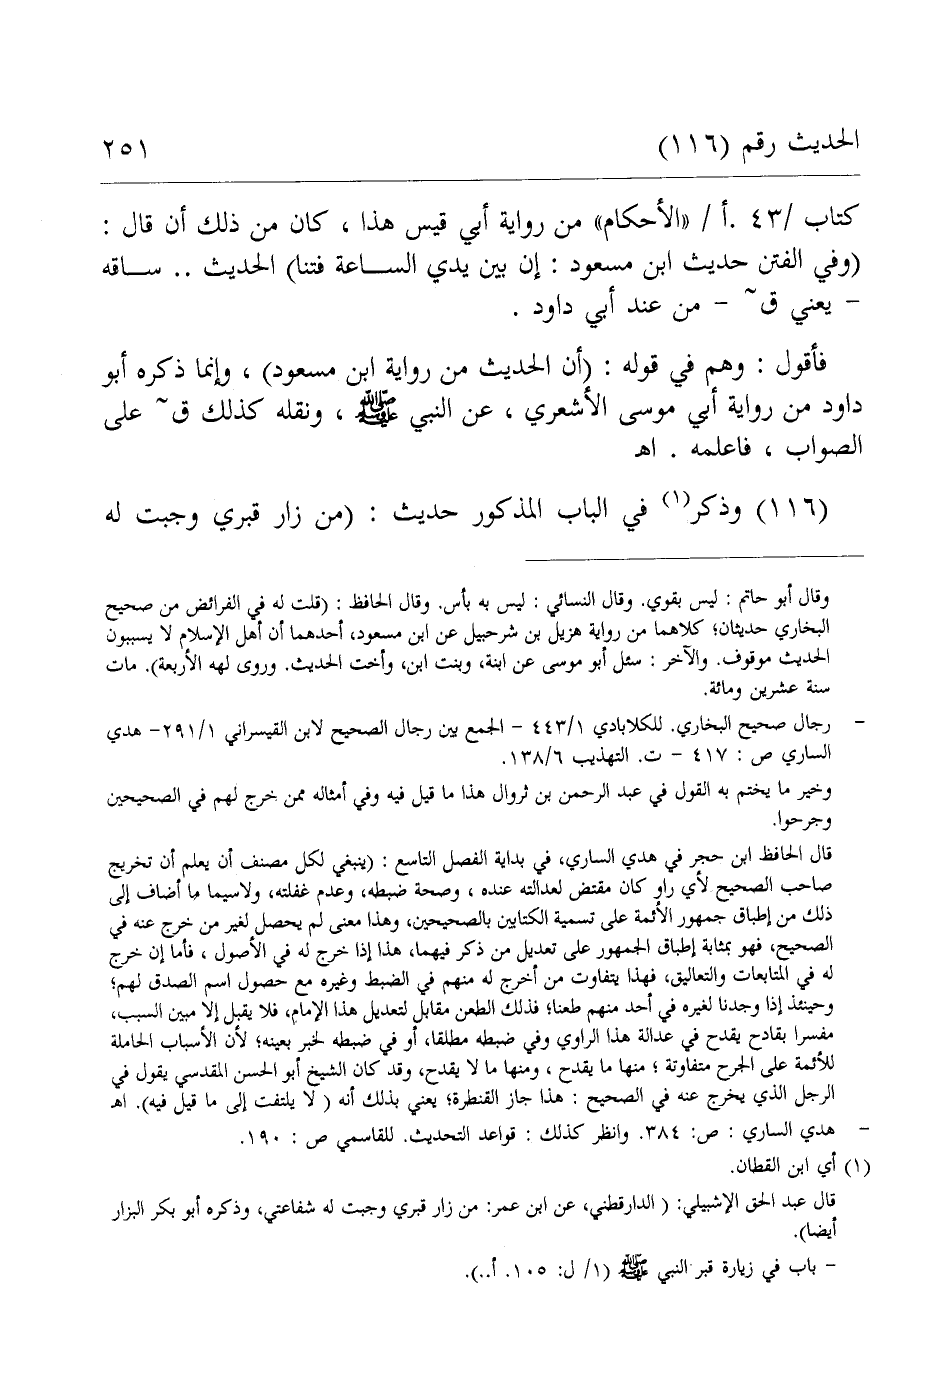 الحديث رقم (١١٦) ٢٥١
كتاب /٤٣ .أ / «الأحكام» من رواية أبي قيس هذا ، كان من ذلك أن قال :
(وفي الفتن حديث ابن مسعود : إن بين يدي الساعة فتنا) الحديث .. ساقه
- يعني ق~ - من عند أبي داود .
فأقول : وهم في قوله : (أن الحديث من رواية ابن مسعود) ، وإنما ذكره أبو
داود من رواية أبي موسى الأشعري ، عن النبي ﷺ ، ونقله كذلك ق~ على
الصواب ، فاعلمه . اهـ
(١١٦) وذكر(١) في الباب المذكور حديث : (من زار قبري وجبت له
وقال أبو حاتم : ليس بقوي. وقال النسائي : ليس به بأس. وقال الحافظ : (قلت له في الفرائض من صحيح
البخاري حديثان؛ كلاهما من رواية هزيل بن شرحبيل عن ابن مسعود، أحدهما أن أهل الإسلام لا يسيبون
الحديث موقوف. والآخر : سئل أبو موسى عن ابنة، وبنت ابن، وأخت الحديث. وروى لهه الأربعة). مات
سنة عشرين ومائة.
- رجال صحيح البخاري. للكلابادي ٤٤٣/١ - الجمع بين رجال الصحيح لابن القيسراني ٢٩١/١- هدي
الساري ص : ٤١٧ - ت. التهذيب ١٣٨/٦.
وخير ما يختم به القول في عبد الرحمن بن ثروال هذا ما قيل فيه وفي أمثاله ممن خرج لهم في الصحيحين
وجرحوا.
قال الحافظ ابن حجر في هدي الساري، في بداية الفصل التاسع : (ينبغي لكل مصنف أن يعلم أن تخريج
صاحب الصحيح لأي راو كان مقتض لعدالته عنده ، وصحة ضبطه، وعدم غفلته، ولاسيما ما أضاف إلى
ذلك من إطباق جمهور الأئمة على تسمية الكتابين بالصحيحين، وهذا معنى لم يحصل لغير من خرج عنه في
الصحيح، فهو بمثابة إطباق الجمهور على تعديل من ذكر فيهما، هذا إذا خرج له في الأصول ، فأما إن خرج
له في المتابعات والتعاليق، فهذا يتفاوت من أخرج له منهم في الضبط وغيره مع حصول اسم الصدق لهم؛
وحينئذ إذا وجدنا لغيره في أحد منهم طعنا؛ فذلك الطعن مقابل لتعديل هذا الإمام، فلا يقبل إلا مبين السبب،
مفسرا بقادح يقدح في عدالة هذا الراوي وفي ضبطه مطلقا، أو في ضبطه لخبر بعينه؛ لأن الأسباب الحاملة
للأئمة على الجرح متفاوتة ؛ منها ما يقدح ، ومنها ما لا يقدح، وقد كان الشيخ أبو الحسن المقدسي يقول في
الرجل الذي يخرج عنه في الصحيح : هذا جاز القنطرة؛ يعني بذلك أنه ( لا يلتفت إلى ما قيل فيه). اهـ
- هدي الساري : ص: ٣٨٤. وانظر كذلك : قواعد التحديث. للقاسمي ص : ١٩٠.
(١) أي ابن القطان.
قال عبد الحق الإشبيلي: ( الدارقطني، عن ابن عمر: من زار قبري وجبت له شفاعتي، وذكره أبو بكر البزار
أيضا).
- باب في زيارة قبر النبي ﷺ (١/ ل: ١٠٥. أ..).